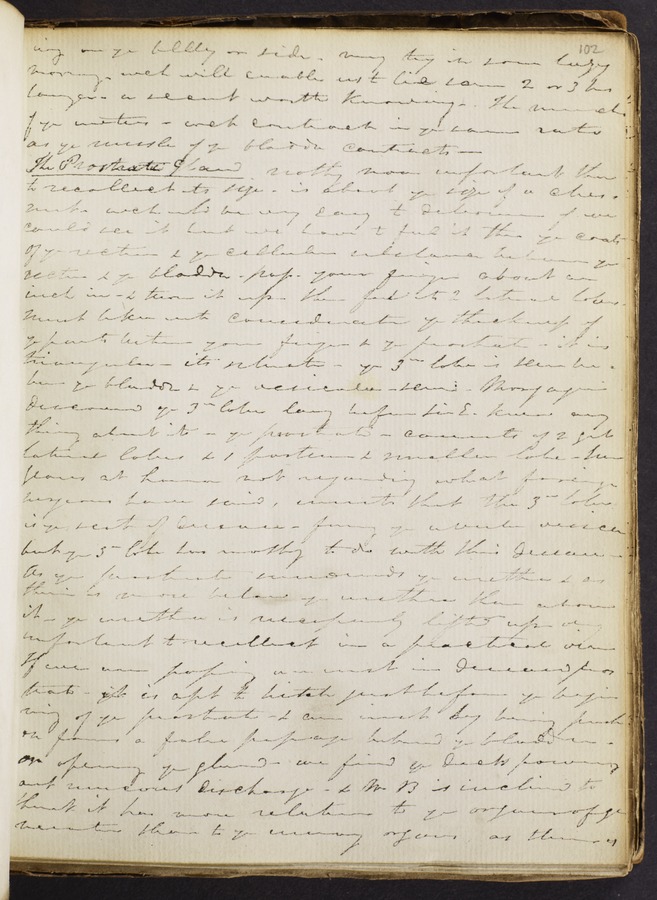 102
ing on ye belly or side. may try it some lazy
morning. wch will enable us t lie some 2 or 3 hrs
longer. a secret worth knowing. The muscles
of ye ureters - wch contract in ye same ratio
as ye muscle of ye bladder contracts -
The Prostrate Gland. nothg more important than
to recollect its size - is about ye size of a ches-
nut. wch wld be very easy to determine if we
could see it but we have t feel it thro ye coats
of ye rectum & ye cellular substance between ye
rectm & ye bladder. pass your finger about an
inch in & turn it up. then feel its 2 lateral lobes
must take into consideration ye thickness of
ye parts between your finger & ye prostrate - it is
triangular - its situatn - ye 3rd lobe is seen be-
tween ye bladder & ye vesiculae semi. Morgagni
discovered ye 3rd lobe long before Sir E. knew any
thing about it - ye prostrate - consists of 2 gt
lateral lobes & 1 posterior & smaller lobe -
at home not regarding what foreign
surgeons have said, insists that the 3rd lobe
is ye seat of disease -
but ye 3rd lobe has nothg to do with this disease
As ye prostrate surrounds ye urethra & as
there is more below ye urethra than above
it - ye urethra is necessarily lifted up very
important t recollect in a practical view
If we are passing an inst in diseased pros
trate - it is apt to hitch just before ye begin
ning of ye prostrate - & an inst by being pushd
on forms a false passage behind ye bladder -
on opening ye gland - we find ye ducts pouring
out mucous discharge - & Mr B is inclined to
think it has more relation to ye organs of ge
neration than to ye urinary organs as there is